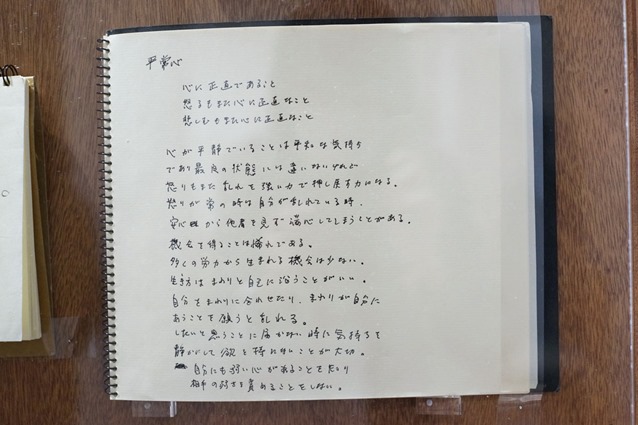 平常心
心に正直であること
怒るもまた心に正直なこと
悲しむもまた心に正直なこと
心が平静でいることは平和な気持ち
であり最良の状態には違いないけれど
怒りもまた乱れを強い力で押し戻す力になる。
怒りが常の時は自分が乱れている時。
安心性から他者を見ず慢心してしまうことがある。
機会を得ることは稀れである。
多くの労力から生まれる機会は少ない。
生き方はまわりと自己に沿うことがいい。
自分をまわりに合わせたり、まわりが自分に
あうことを願うと乱れる。
したいと思うことに届かない時に気持ちを
静かにして欲を持たないことが大切。
自分にも弱い心があることを知り
相手の弱さを責めることをしない。